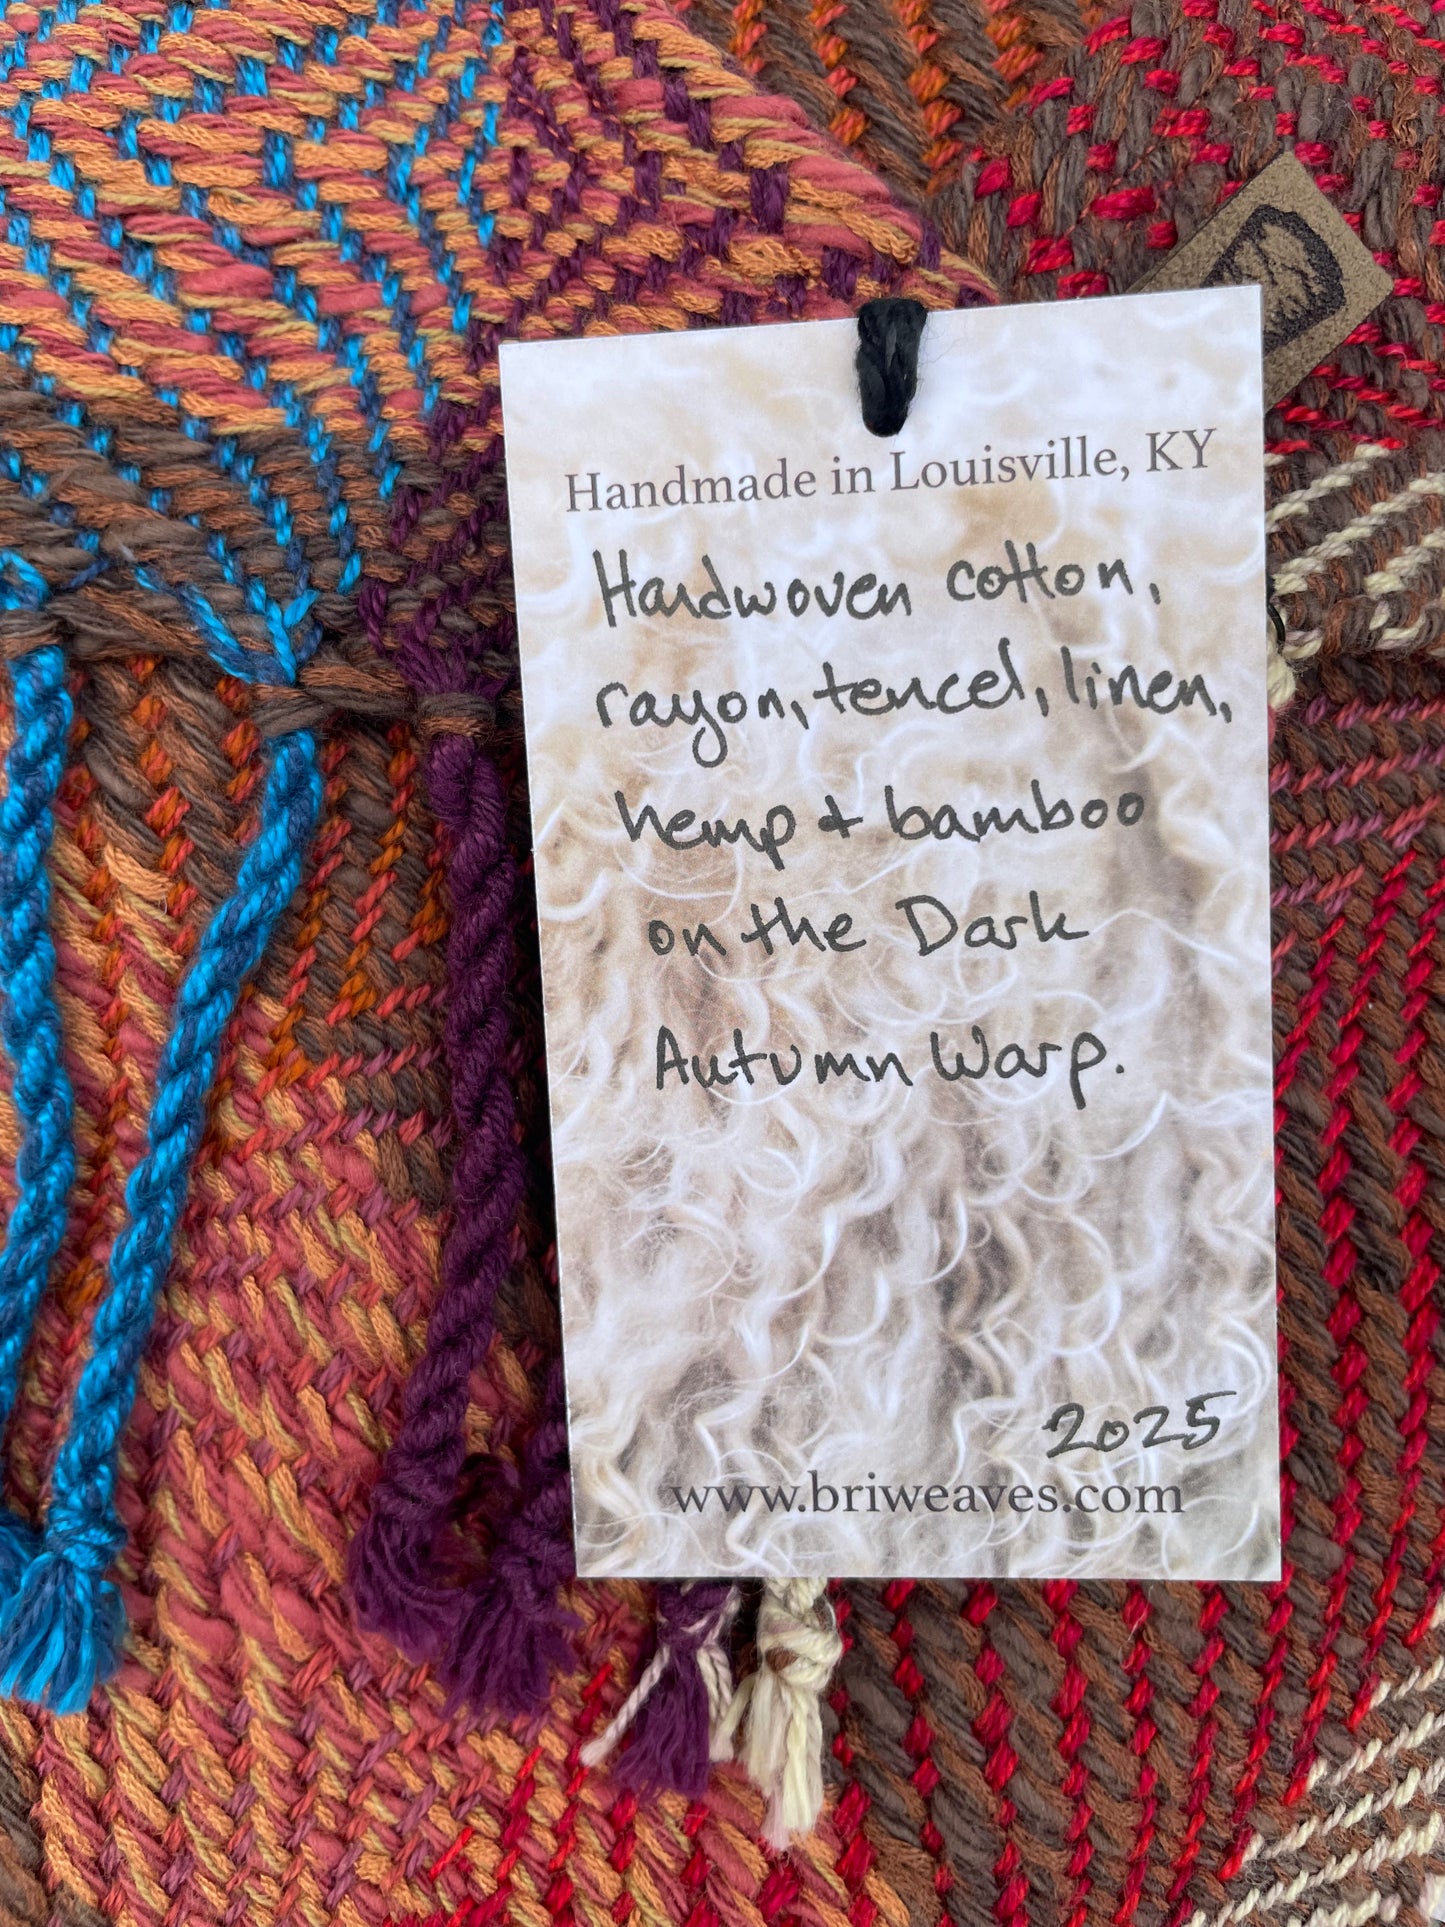 Handmade in Louisville, KY
Handwoven cotton,
rayon, tencel, linen,
hemp + bamboo
on the Dark
Autumn Warp.
2025
www.briweaves.com